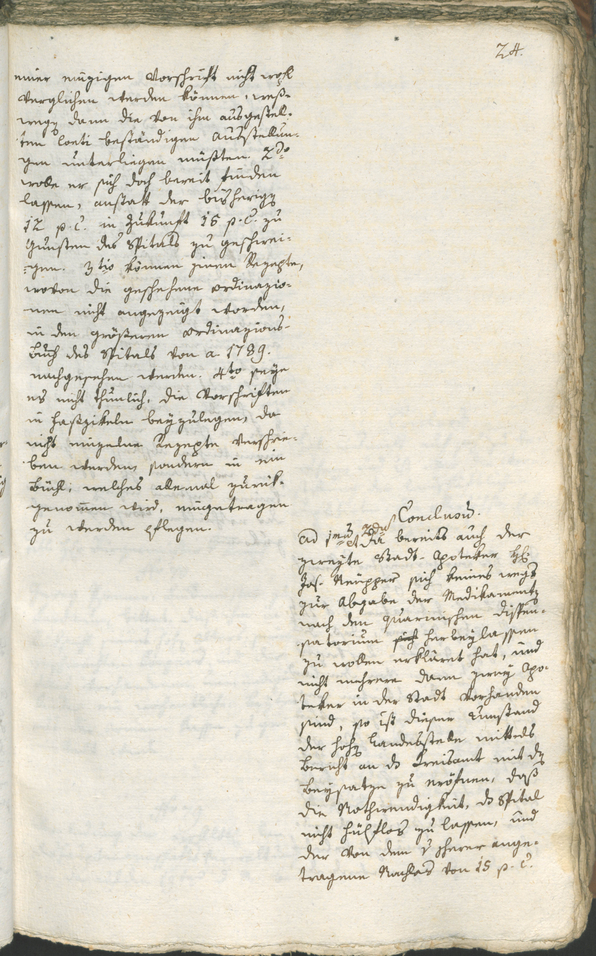 24.
einer einzigen Vorschrift nicht wohl
verglichen werden können, weß-
wegen dann die von ihm ausgestel-
ten beständigen Ausstellun-
gen unterliegen müßten. 2do
wolle er sich doch bereit finden
lassen, anstatt der bisherigen
12 p. C. in Zukunft 15 p. C. zu
Gunsten des Spitals zu
gen. 3tio können jene Rezepte,
wovon die geschehene ordinazio-
nen nicht angezeigt worden,
in den größeren ordinazions-
buch des Spitals von a 1789.
nachgesehen werden. 4to seye
es nicht thunlich, die Vorschriften
in Faszikeln beyzulegen, da
nicht einzelne Rezepte verschrie-
ben werden, sondern in ein
Büchl, welches allemal zurük-
genommen wird, eingetragen
zu werden pflegen.
Conclusum.
ad 1mum et 2dum Da bereits auch der
zweyte Stadt-Apoteker
Jos. sich keines wegs
zur Abgabe der Medikamenten
nach den quarinschen Dispen-
satorium herbeylassen
zu wollen erkläret hat, und
nicht mehrere dann zwey Apo-
teker in der Stadt vorhanden
sind, so ist dieser Umstand
der hohen Landesstelle mittels
Bericht an das Kreisamt mit dem
Beysatze zu eröfnen, daß
die Nothwendigkeit, das Spital
nicht hülflos zu lassen, und
der von dem ange-
tragene Nachlas von 15 p. C.